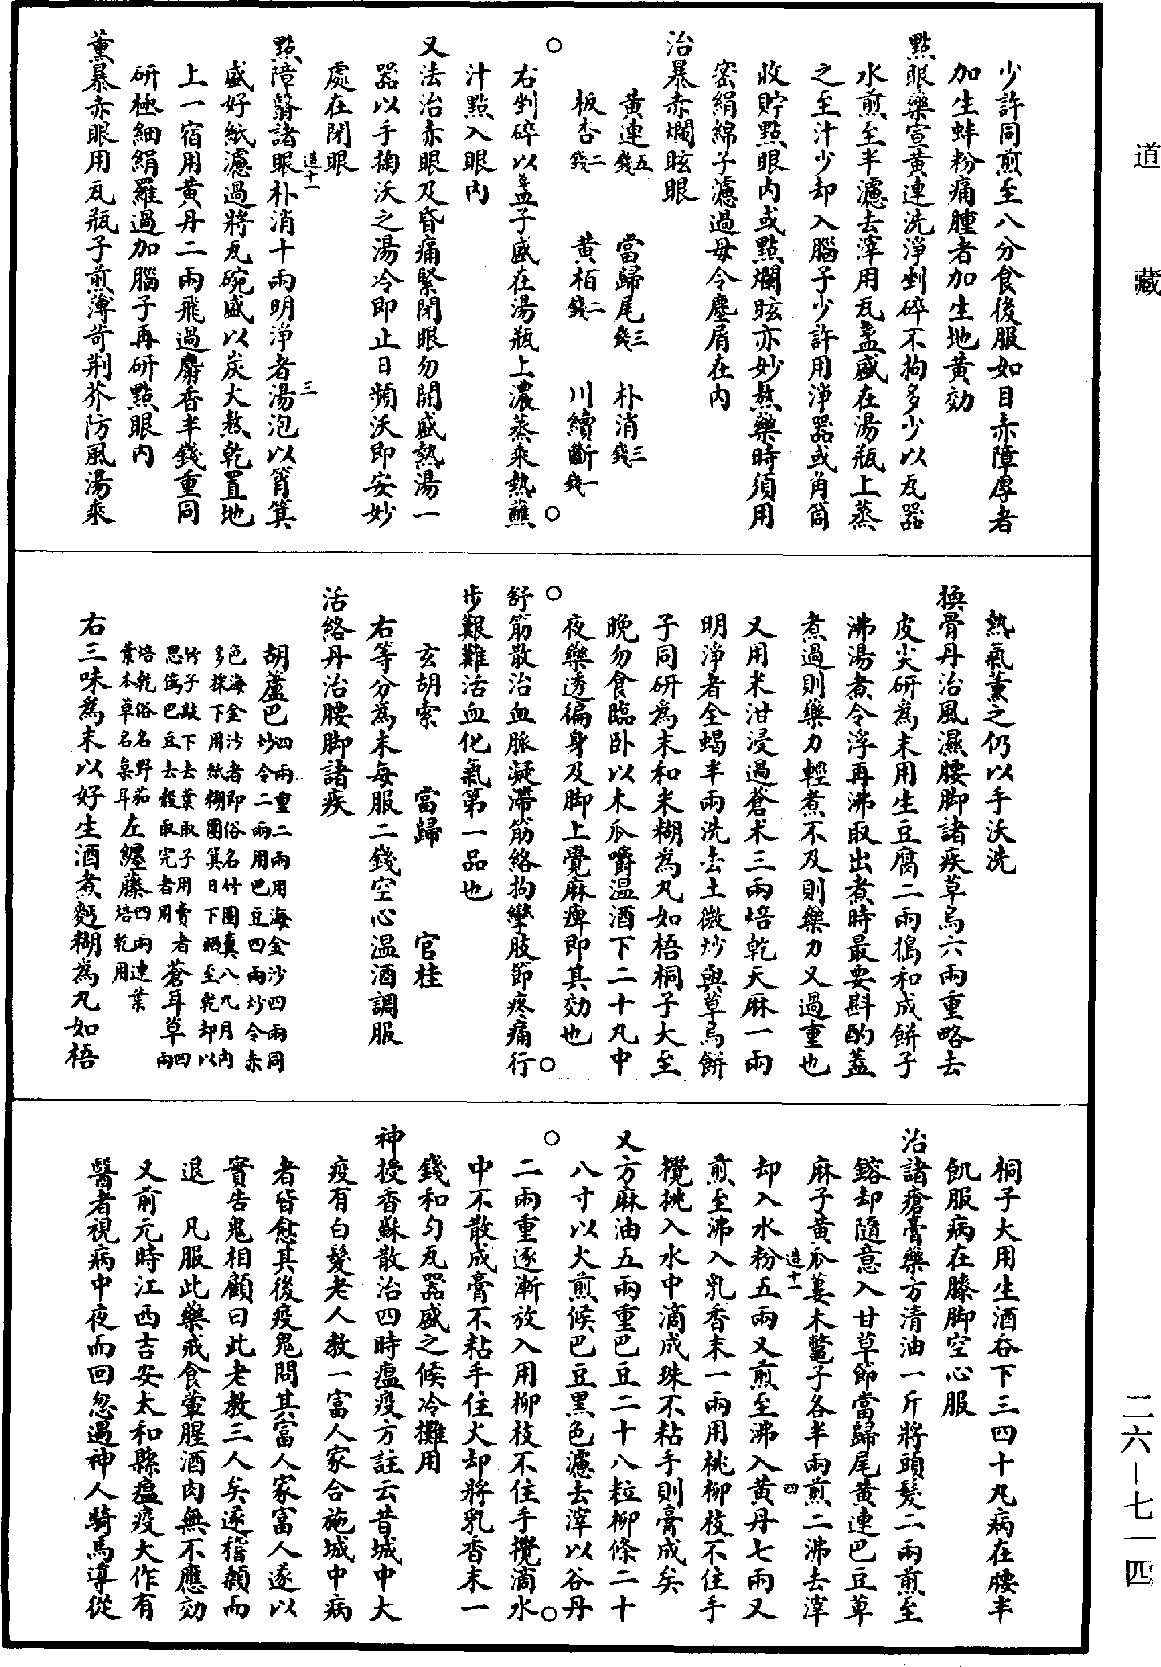 道藏
少許同煎至八分食後服如目赤障厚者
加生蚌粉痛腫者加生地黃効
點眼藥宣黃連洗淨剉碎不拘多少以瓦器
水煎至半濾去滓用瓦盞盛在湯瓶上蒸
之至汁少却入腦子少許用淨器或角筒
收貯點眼內或點爛眩亦妙熬藥時須用
密絹綿子濾過毋令塵屑在內
治暴赤爛眩眼
黃連五錢 當歸尾三錢 朴消三錢
板杏二錢 黃栢二錢 川續斷一錢
右剉碎以盞子盛在湯瓶上濃蒸乘熱蘸
汁點入眼內
又法治赤眼及昏痛緊閉眼勿開盛熱湯一
器以手掬沃之湯冷即止日頻沃即安妙
處在閉眼
造十一 三
點障翳諸眼朴消十兩明淨者湯泡以筲箕
盛好紙濾過將瓦碗盛以炭火熬乾置地
上一宿用黃丹二兩飛過麝香半錢重同
研極細絹羅過加腦子再研點眼內
薰暴赤眼用瓦瓶子煎薄荷荆芥防風湯乘
熱氣薰之仍以手沃洗
換骨丹治風濕腰脚諸疾草烏六兩重略去
皮尖研為末用生豆腐二兩搗和成餅子
沸湯煮令浮再沸取出煮時最要斟酌蓋
煮過則藥力輕煮不及則藥力又過重也
又用米泔浸過蒼术三兩焙乾天麻一兩
明淨者全蝎半兩洗去土微炒與草烏餅
子同研為末和米糊為丸如梧桐子大至
晚勿食臨臥以木瓜嚼温酒下二十丸中
夜藥透徧身及脚上覺麻痺即其効也
舒筋散治血脈凝滯筋絡拘攣肢節疼痛行
步艱難活血化氣第一品也
玄胡索 當歸 官桂
右等分為末每服二錢空心温酒調服
活絡丹治腰脚諸疾
胡蘆巴四兩重二兩用海金沙四兩同炒令二兩用巴豆四兩炒令赤色海金沙者即俗名竹園真八九月內多採下用絲網圍箕日下晒至乾却以竹子敲下去葉取子用賣者思偽巴豆去殼取完者用 蒼耳草四兩焙乾俗名野茄葉本草名枲耳 左纏藤四兩連葉焙乾用
右三味為末以好生酒煮麪糊為丸如梧
桐子大用生酒吞下三四十丸病在腰半
飢服病在膝脚空心服
治諸瘡膏藥方清油一斤將頭髮二兩煎至
鎔却隨意入甘草節當歸尾黃連巴豆草
麻子黃瓜蔞木鼈子各半兩煎二沸去滓
造十一 四
却入水粉五兩又煎至沸入黃丹七兩又
煎至沸入乳香末一兩用桃柳枝不住手
攪挑入水中滴成珠不粘手則膏成矣
又方麻油五兩重巴豆二十八粒柳條二十
八寸以火煎候巴豆黑色濾去滓以谷丹
二兩重逐漸放入用柳枝不住手攪滴水
中不散成膏不粘手住火却將乳香末一
錢和勻瓦器盛之候冷攤用
神授香蘇散治四時瘟疫方註云昔城中大
疫有白髮老人教一富人家合施城中病
者皆愈其後疫鬼問其富人家富人遂以
實告鬼相顧曰此老教三人矣遂稽顙而
退 凡服此藥戒食葷腥酒肉無不應効
又前元時江西吉安太和縣瘟疫大作有
醫者視病中夜而回忽遇神人騎馬導從
二六—七一四